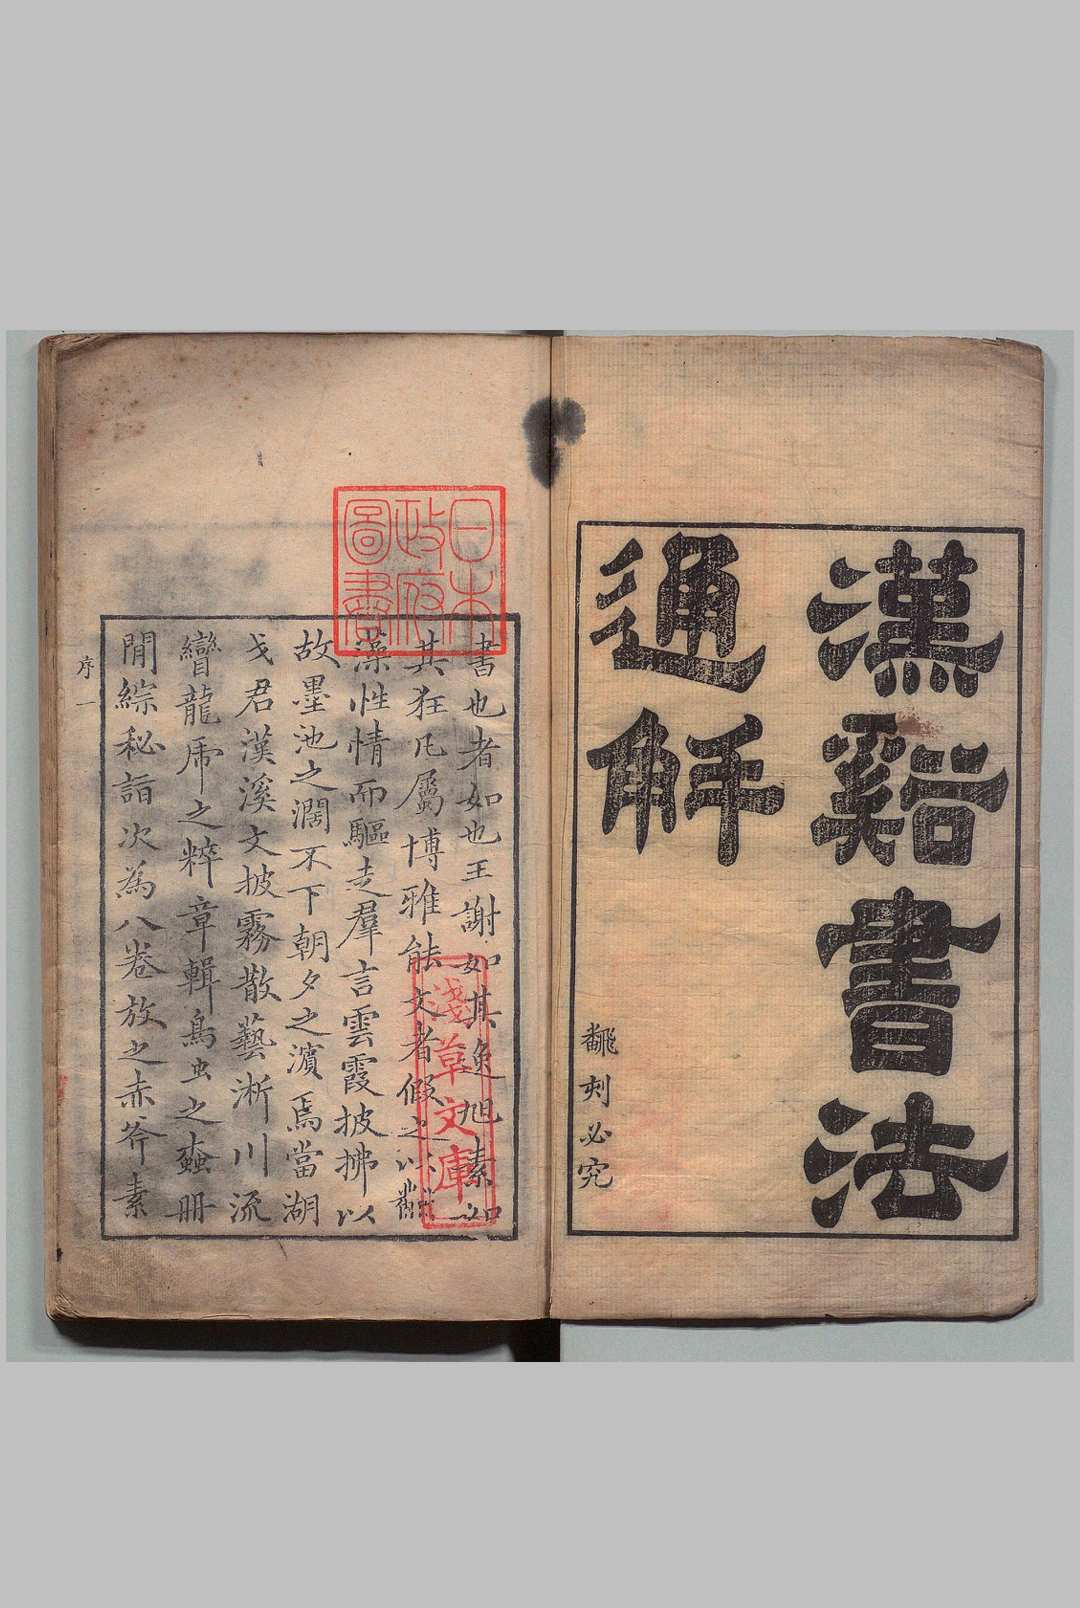 漢谿書法
通解
飜刻必究
日本
政府
圖書
淺草文庫
書也者如也王謝如其逸旭素如
其狂凡屬博雅能文者假之以觀
藻性情而驅走羣言雲霞披拂以
故墨池之濶不下朝夕之濵焉當湖
戈君漢溪文披霧散藝淅川流
纘龍虎之粹章輯鳥虫之蠧冊
閒綜秘詣次為八卷放之赤斧素
序一